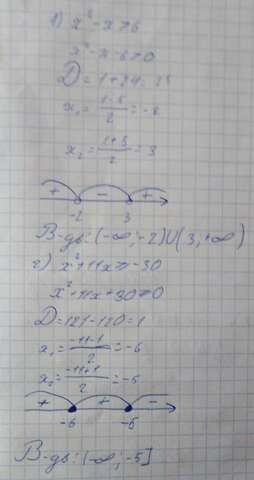 в) x² - x > 6
x² - x - 6 > 0
D = 1 + 24 = 25
x₁ = (1-5)/2 = -2
x₂ = (1+5)/2 = 3
+ - +
-2 3
В-дь: (-∞; -2)∪(3; +∞)
г) x² + 11x ≥ -30
x² + 11x + 30 ≥ 0
D = 121 - 120 = 1
x₁ = (-11-1)/2 = -6
x₂ = (-11+1)/2 = -5
+ + -
-6 -5
В-дь: (-∞; -5]